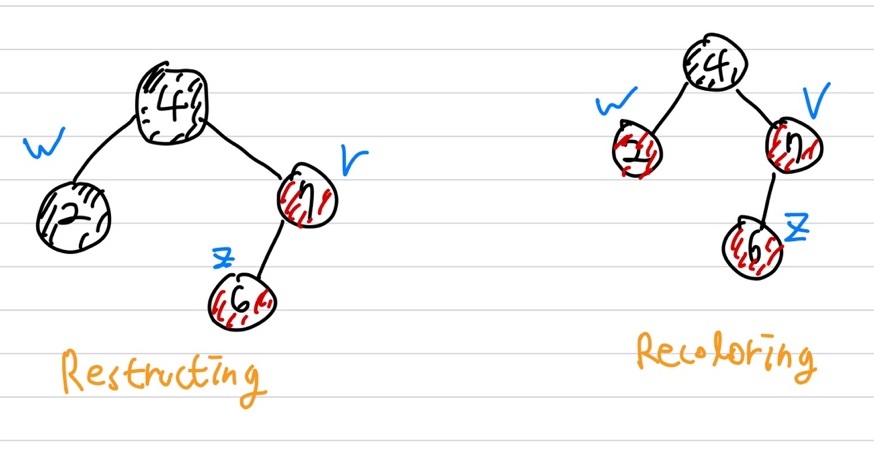 4
W
V
2
7
z
6
Restructing
4
W
V
2
7
z
6
Recoloring